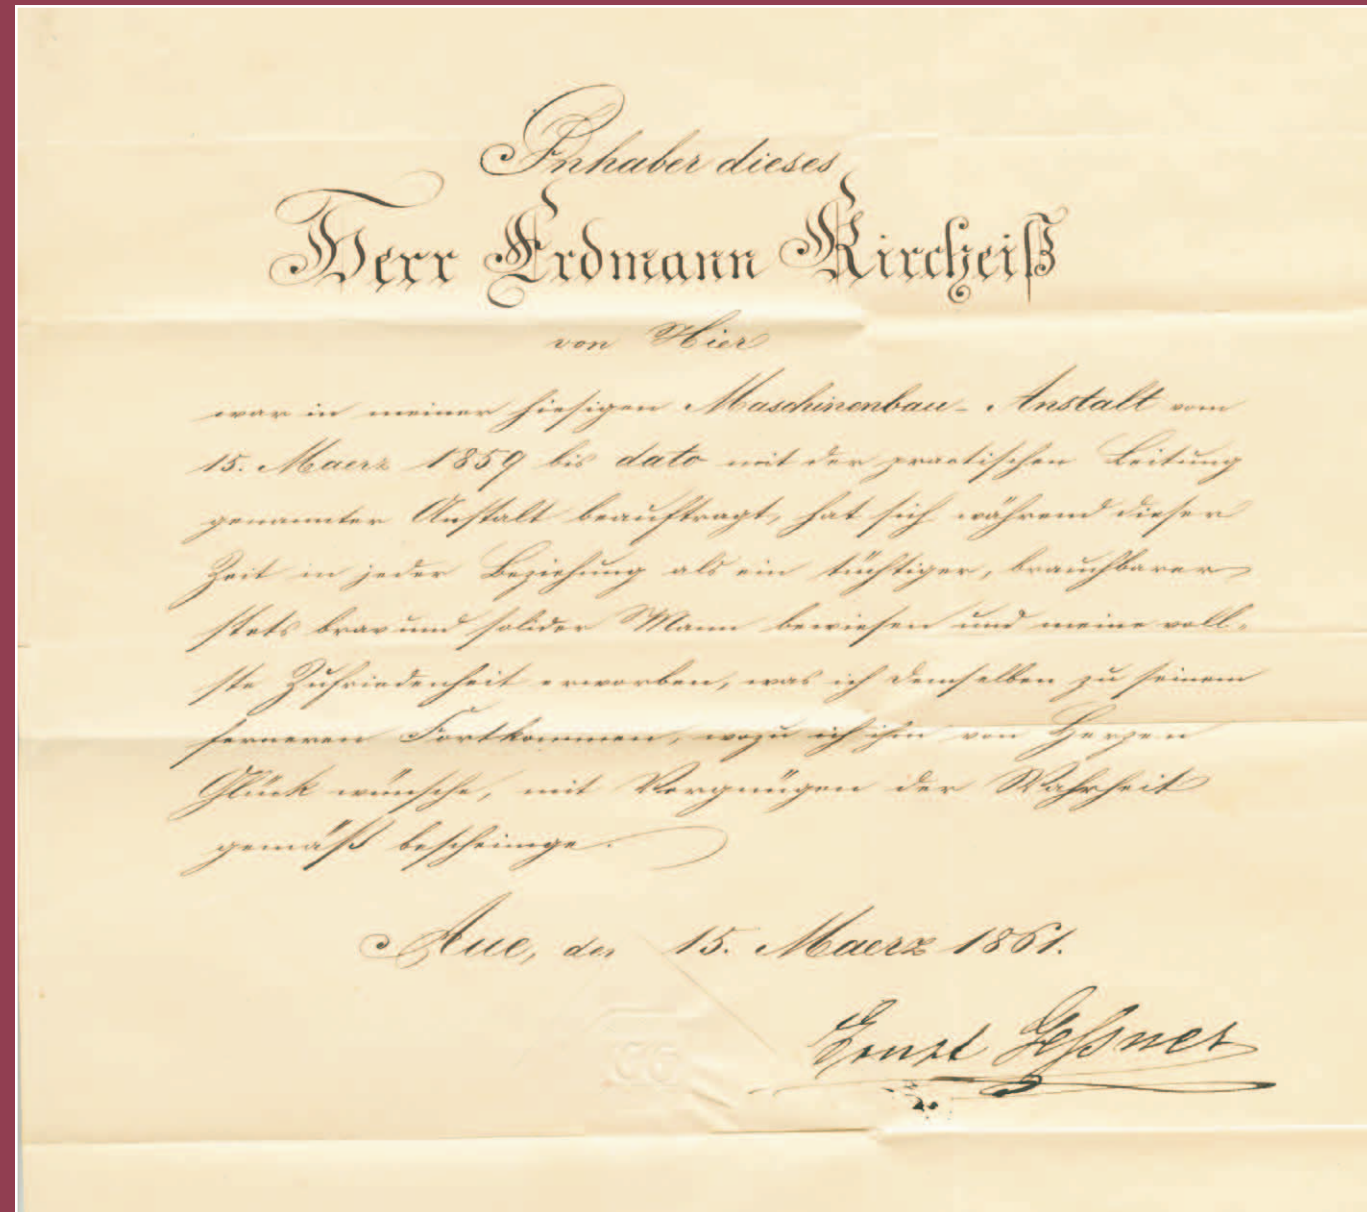 Inhaber dieses
Herr Erdmann Kircheiß
von Hier
war in meiner hiesigen Maschinenbau-Anstalt vom
15. Maerz 1859 bis dato mit der practischen Leitung
genannter Anstalt beauftragt, hat sich während dieser
Zeit in jeder Beziehung als ein tüchtiger, brauchbarer
stets brav und solider Mann bewiesen und meine voll-
ste Zufriedenheit erworben, was ich demselben zu seinem
ferneren Fortkommen, wozu ich ihm von Herzen
Glück wünsche, mit Vergnügen der Wahrheit
gemäß bescheinige.
Aue, den 15. Maerz 1861.
Ernst Geßner